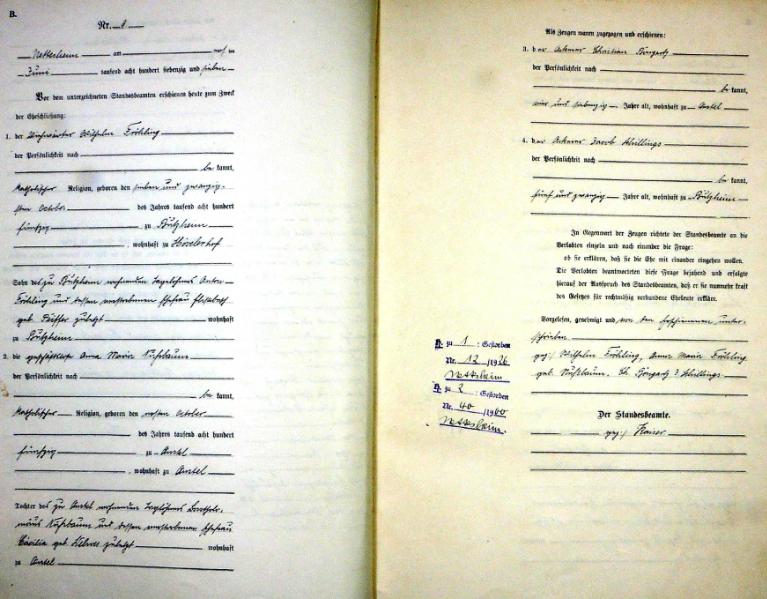 B.
Nr. 8
Nettesheim am
Juni tausend acht hundert siebenzig und sieben
Vor dem unterzeichneten Standesbeamten erschienen heute zum Zweck
der Eheschließung:
1. der Wilhelm Fröhling
der Persönlichkeit nach
be kannt,
katholischer Religion, geboren den sieben und zwanzig-
sten October des Jahres tausend acht hundert
fünfzig zu Bützheim
, wohnhaft zu
Sohn des zu Bützheim wohnenden Tagelöhners Anton
Fröhling und dessen verstorbenen Ehefrau Elisabeth
geb. zuletzt wohnhaft
zu Bützheim
2. die Anna Maria Nußbaum
der Persönlichkeit nach
be kannt,
katholischer Religion, geboren den ersten October
des Jahres tausend acht hundert
fünfzig zu Anstel
, wohnhaft zu Anstel
Tochter des zu Anstel wohnenden Tagelöhners Bartholo-
mäus Nußbaum und dessen verstorbenen Ehefrau
Cäcilia geb. zuletzt wohnhaft
zu Anstel
Als Zeugen waren zugezogen und erschienen:
3. der Ackerer Christian
der Persönlichkeit nach
be kannt,
vier und siebenzig Jahre alt, wohnhaft zu Anstel
4. der Ackerer Jacob
der Persönlichkeit nach
be kannt,
fünf und zwanzig Jahre alt, wohnhaft zu Bützheim
In Gegenwart der Zeugen richtete der Standesbeamte an die
Verlobten einzeln und nach einander die Frage:
ob sie erklären, daß sie die Ehe mit einander eingehen wollen.
Die Verlobten beantworteten diese Frage bejahend und erfolgte
hierauf der Ausspruch des Standesbeamten, daß er sie nunmehr kraft
des Gesetzes für rechtmäßig verbundene Eheleute erkläre.
Vorgelesen, genehmigt und von den Erschienenen unter-
schrieben
gez: Wilhelm Fröhling, Anna Maria Fröhling
geb. Nußbaum.
Der Standesbeamte.
gez:
zu 1 : Gestorben
Nr. 12 /1926
Nettesheim
zu 2 : Gestorben
Nr. 40 /1960
Nettesheim.